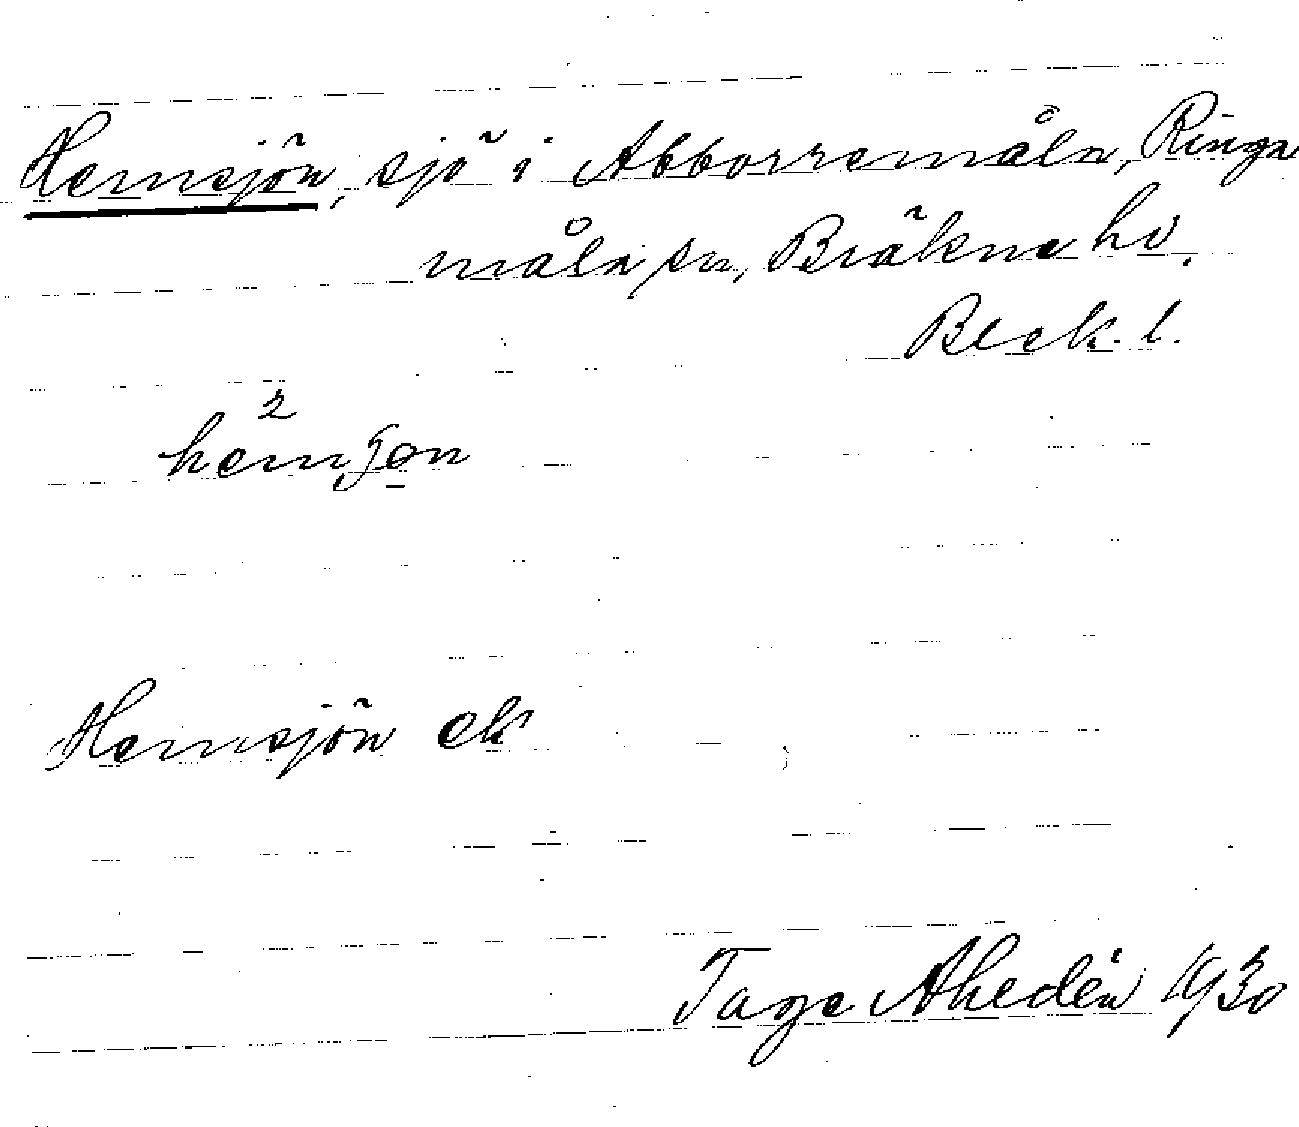 Hemsjön, sjö i Abborremåla, Ringa
måla sn, Bräkne hd.
Blek. l.
Hemsjön ek
Tage Ahedén 1930